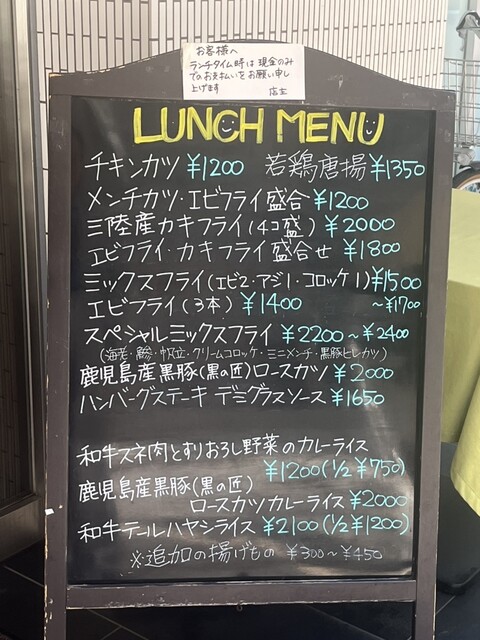 お客様へ
ランチタイム時は現金のみ
でのお支払いをお願い申し
上げます 店主
LUNCH MENU
チキンカツ ¥1200 若鶏唐揚 ¥1350
メンチカツ・エビフライ盛合 ¥1200
三陸産カキフライ(4コ盛) ¥2000
エビフライ・カキフライ盛合せ ¥1800
ミックスフライ(エビ2・アジ1・コロッケ1) ¥1500
エビフライ(3本) ¥1400 ~¥1700
スペシャルミックスフライ ¥2200~¥2400
(海老・鯵・帆立・クリームコロッケ・ミニメンチ・黒豚ヒレカツ)
鹿児島産黒豚(黒の匠)ロースカツ ¥2000
ハンバーグステーキ デミグラスソース ¥1650
和牛スネ肉とすりおろし野菜のカレーライス
¥1200(1/2 ¥750)
鹿児島産黒豚(黒の匠)
ロースカツカレーライス ¥2000
和牛テールハヤシライス ¥2100(1/2 ¥1200)
※追加の揚げもの ¥300~¥450